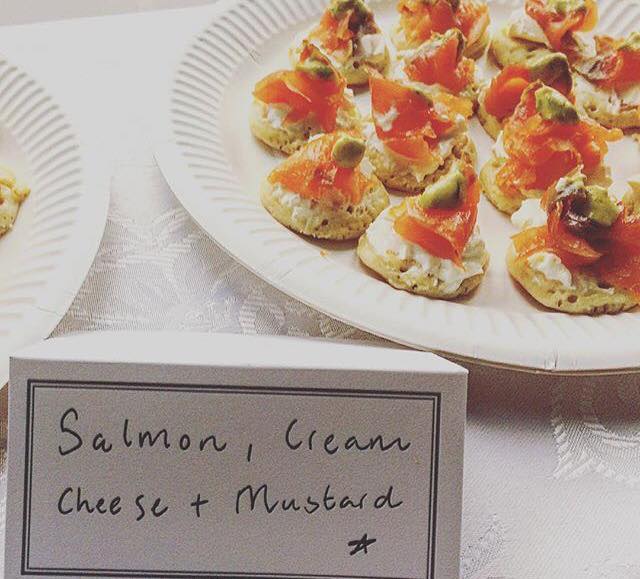 Salmon, Cream
Cheese + Mustard